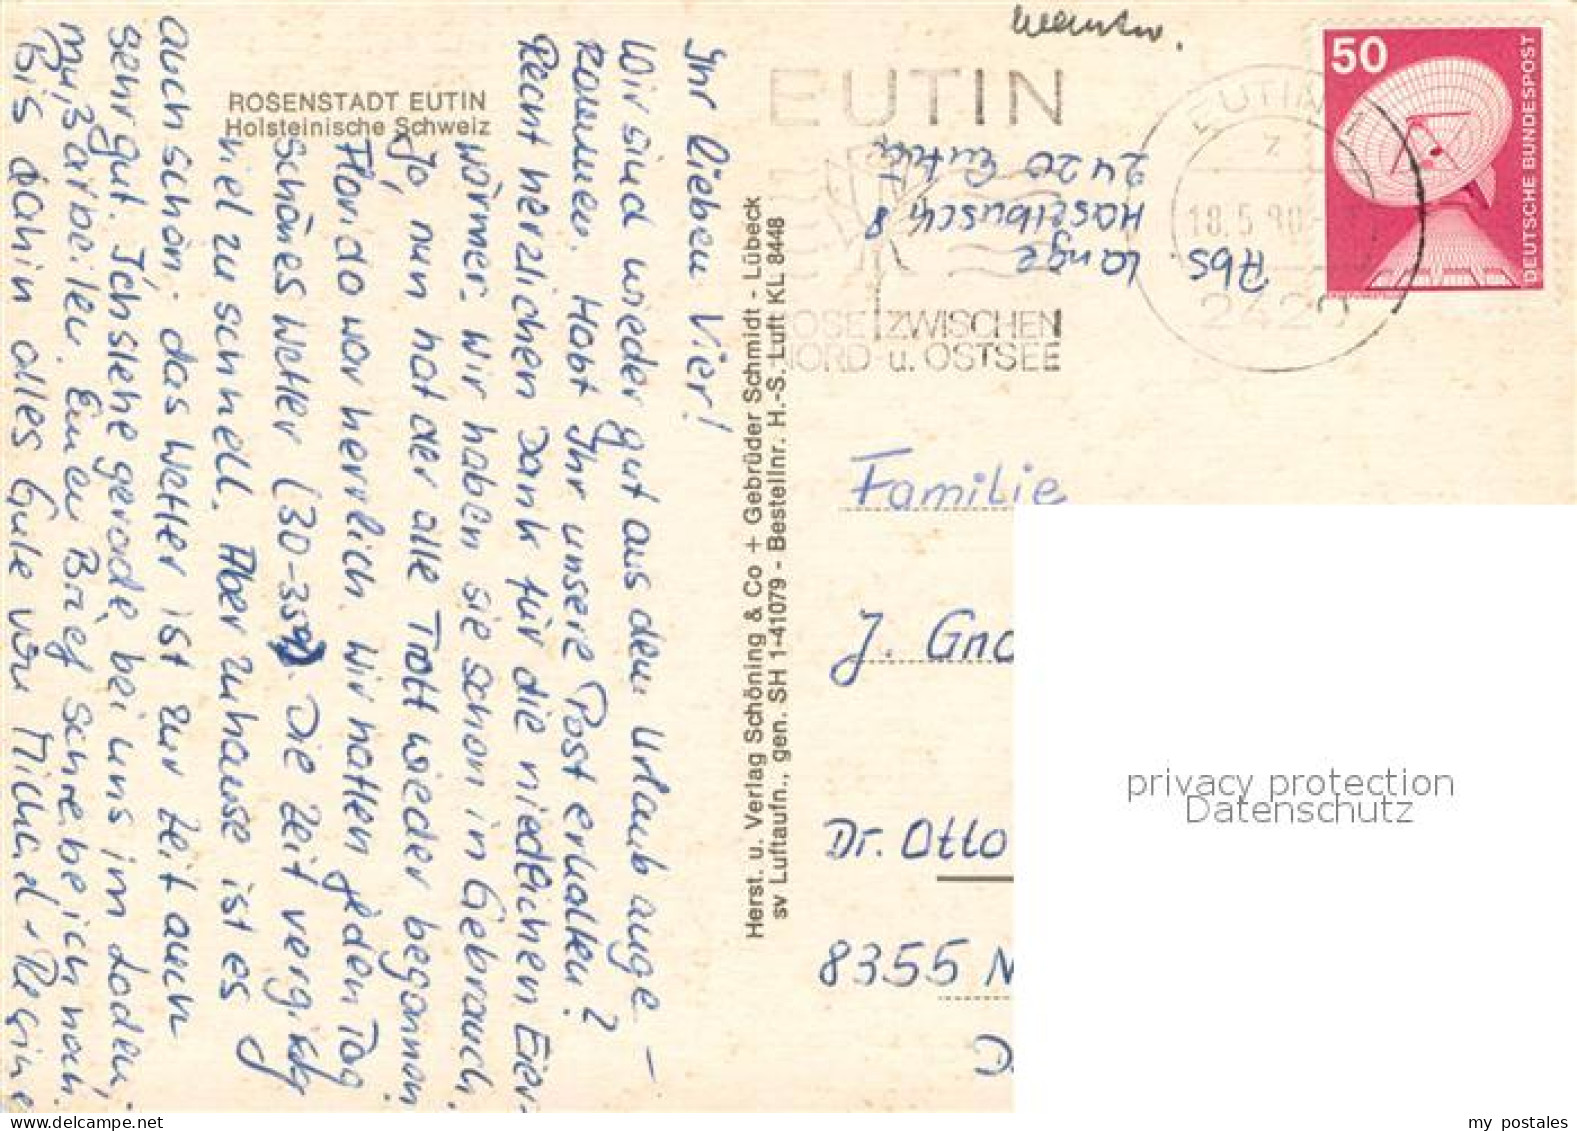 ROSENSTADT EUTIN
Holsteinische Schweiz
Ihr lieben Vier!
Wir sind wieder gut aus dem Urlaub ange-
kommen. Habt Ihr unsere Post erhalten?
Recht herzlichen Dank für die niedlichen Eier-
wärmer. Wir haben sie schon in Gebrauch.
Ja, nun hat der alle Trott wieder begonnen
Florida war herrlich. Wir hatten jeden Tag
schönes Wetter (30-35°). Die Zeit verging
viel zu schnell. Aber zuhause ist es ja
auch schön; das Wetter ist zur Zeit auch
sehr gut. Ich stehe gerade bei uns im Laden,
muß arbeiten. Einen Brief schreibe ich noch.
Bis dahin alles Gute von Michael + Regine
Herst. u. Verlag Schöning & Co + Gebrüder Schmidt - Lübeck
sv Luftaufn., gen. SH 1-41079 - Bestellnr. H.-S. Luft KL 8448
EUTIN
ROSE ZWISCHEN
NORD- u. OSTSEE
EUTIN 1
z
18.5.90
2420
50
DEUTSCHE BUNDESPOST
Abs
Lange
Haselbusch 8
2420 Eutin
Familie
J. Gna
Dr. Otto
8355 N
D.
privacy protection
Datenschutz
my postales